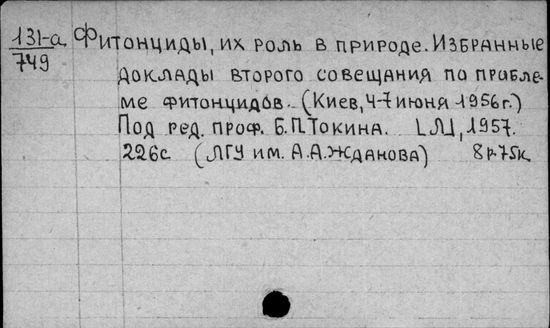 131-а Фитонциды, их роль в природе. Избранные
749 доклады второго совещания по пробле-
ме фитонцидов. (Киев, 4-7 июня 1956 г.)
Под ред. проф. Б.П. Токина. [Л.], 1957.
226с (ЛГУ им. А.А. Жданова) 8р.75к.